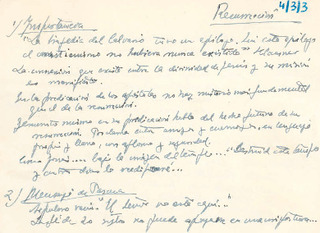 Resurrección 4/3/3
1) Importancia
"La tragedia del Calvario tuvo un epílogo. Sin este epílogo
el cristianismo no hubiera nunca existido"
La conexión que existe entre la divinidad de Jesús y su misión
es manifiesta.
En la predicación de los apóstoles no hay misterio más fundamental
que el de la resurrección.
Jesucristo mismo en su predicación habló del hecho futuro de su
resurrección. Proclama ante amigos y enemigos, en lenguaje
propio y llano,
Como Jonás.... bajo la imagen del templo... "Destruid este templo
y en tres días lo reedificaré...
2) Mensaje de Pascua
Sepulcro vacío "El Señor no está aquí..."
La fe de 20 siglos no puede apoyarse en